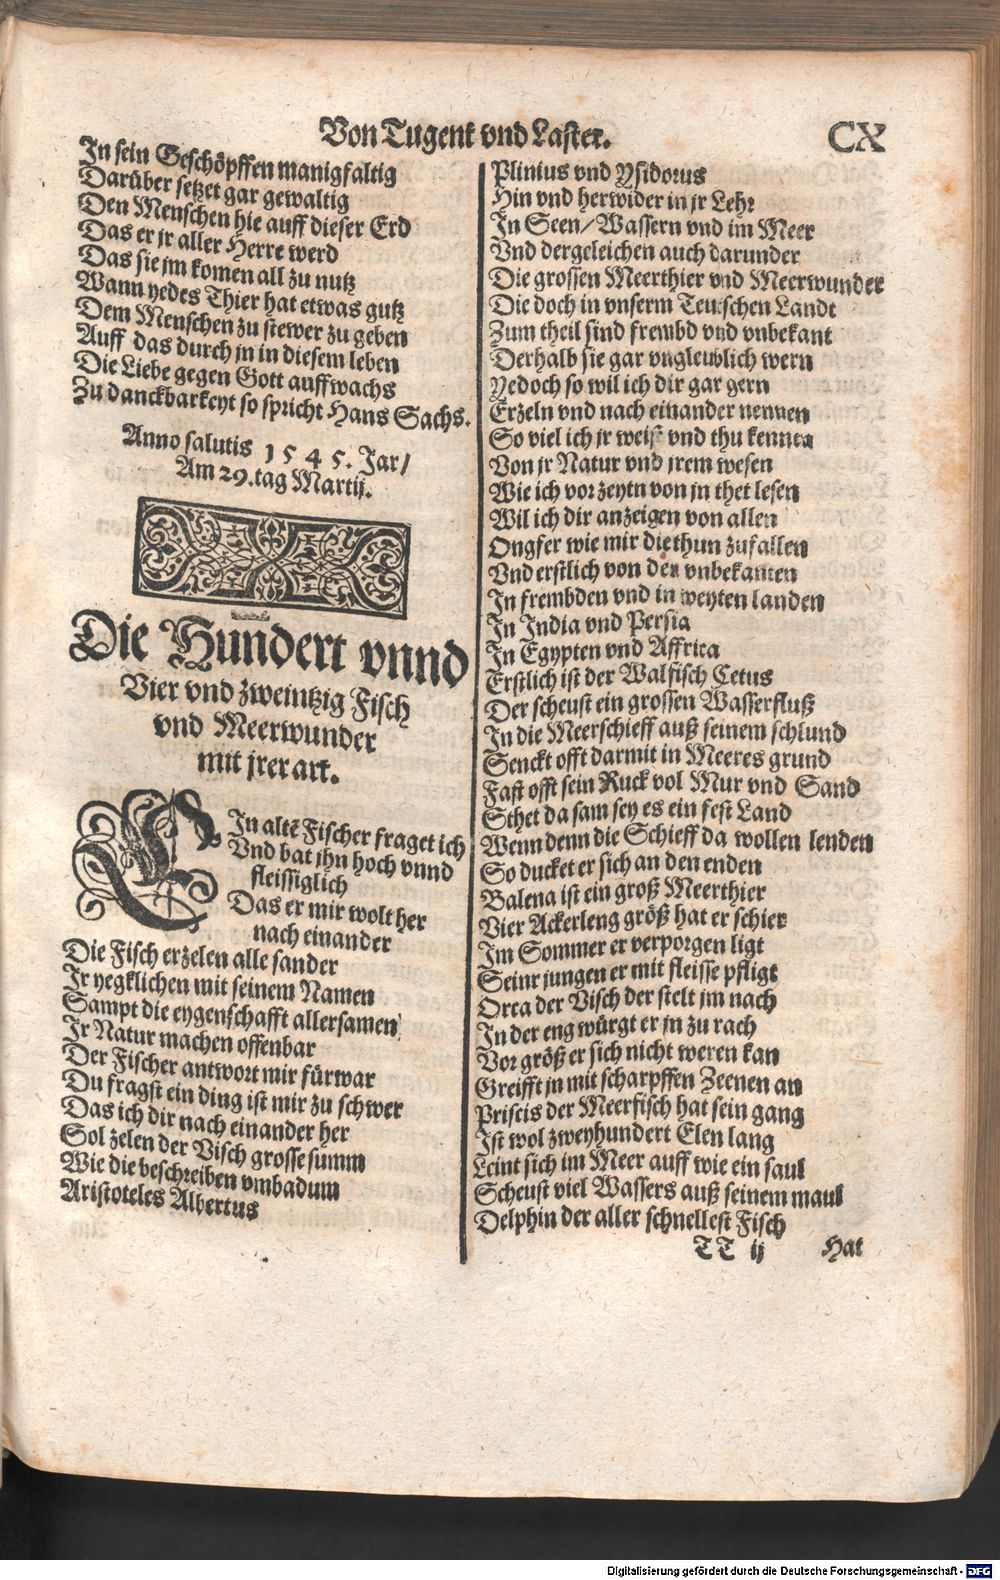 Von Tugent vnd Laster. CX
In sein Geschöpffen manigfaltig
Darüber setzet gar gewaltig
Den Menschen hie auff dieser Erd
Das er jr aller Herre werd
Das sie jm komen all zu nutz
Wann yedes Thier hat etwas gutz
Dem Menschen zu stewer zu geben
Auff das durch jn in diesem leben
Die Liebe gegen Gott auffwachs
Zu danckbarkeyt so spricht Hans Sachs.
Anno salutis 1545. Jar/
Am 29. tag Martij.
Die Hundert vnnd
Vier vnd zweintzig Fisch
vnd Meerwunder
mit jrer art.
EIn altẽ Fischer fraget ich
Vnd bat jhn hoch vnnd
fleissiglich
Das er mir wolt her
nach einander
Die Fisch erzelen alle sander
Jr yegklichen mit seinem Namen
Sampt die eygenschafft allersamen
Jr Natur machen offenbar
Der Fischer antwort mir fürwar
Du fragst ein ding ist mir zu schwer
Das ich dir nach einander her
Sol zelen der Visch grosse summ
Wie die beschreiben vmbadum
Aristoteles Albertus
Plinius vnd Ysidorus
Hin vnd herwider in jr Lehr
In Seen/Wassern vnd im Meer
Vnd dergeleichen auch darunder
Die grossen Meerthier vnd Meerwunder
Die doch in vnserm Teutschen Landt
Zum theil sind frembd vnd vnbekant
Derhalb sie gar vngleublich wern
Yedoch so wil ich dir gar gern
Erzeln vnd nach einander nennen
So viel ich jr weiß vnd thu kennen
Von jr Natur vnd jrem wesen
Wie ich vor zeytn von jn thet lesen
Wil ich dir anzeigen von allen
Ongfer wie mir die thun zufallen
Vnd erstlich von den vnbekanten
In frembden vnd in weyten landen
In India vnd Persia
In Egypten vnd Affrica
Erstlich ist der Walfisch Cetus
Der scheust ein grossen Wasserfluß
In die Meerschieff auß seinem schlund
Senckt offt darmit in Meeres grund
Fast offt sein Ruck vol Mur vnd Sand
Sthet da sam sey es ein fest Land
Wenn denn die Schieff da wollen lenden
So ducket er sich an den enden
Balena ist ein groß Meerthier
Vier Ackerleng größ hat er schier
Im Sommer er verporgen ligt
Seinr jungen er mit fleisse pfligt
Orca der Visch der stelt jm nach
In der eng würgt er jn zu rach
Vor größ er sich nicht weren kan
Greifft jn mit scharpffen Zeenen an
Priscis der Meerfisch hat sein gang
Ist wol zweyhundert Elen lang
Leint sich im Meer auff wie ein saul
Scheust viel Wassers auß seinem maul
Delphin der aller schnellest Fisch
TT ij Hat
Digitalisierung gefördert durch die Deutsche Forschungsgemeinschaft - DFG